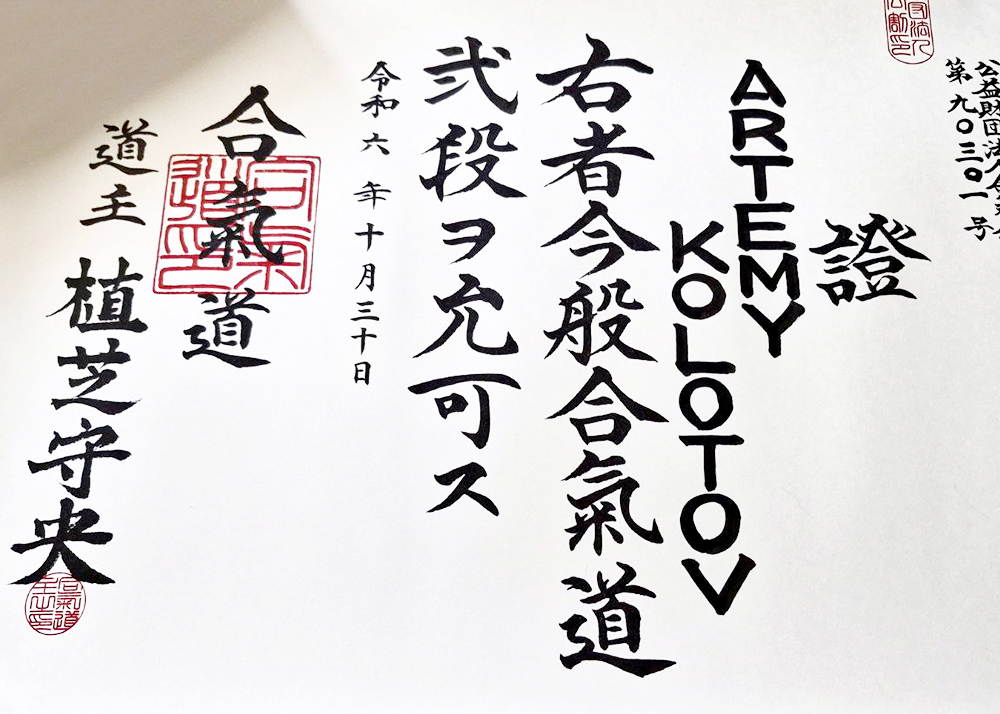 公益財団法人合気会
第九〇三〇一号
證
ARTEMY
KOLOTOV
右者今般合氣道
弐段ヲ允可ス
令和六年十月三十日
合氣道
道主 植芝守央